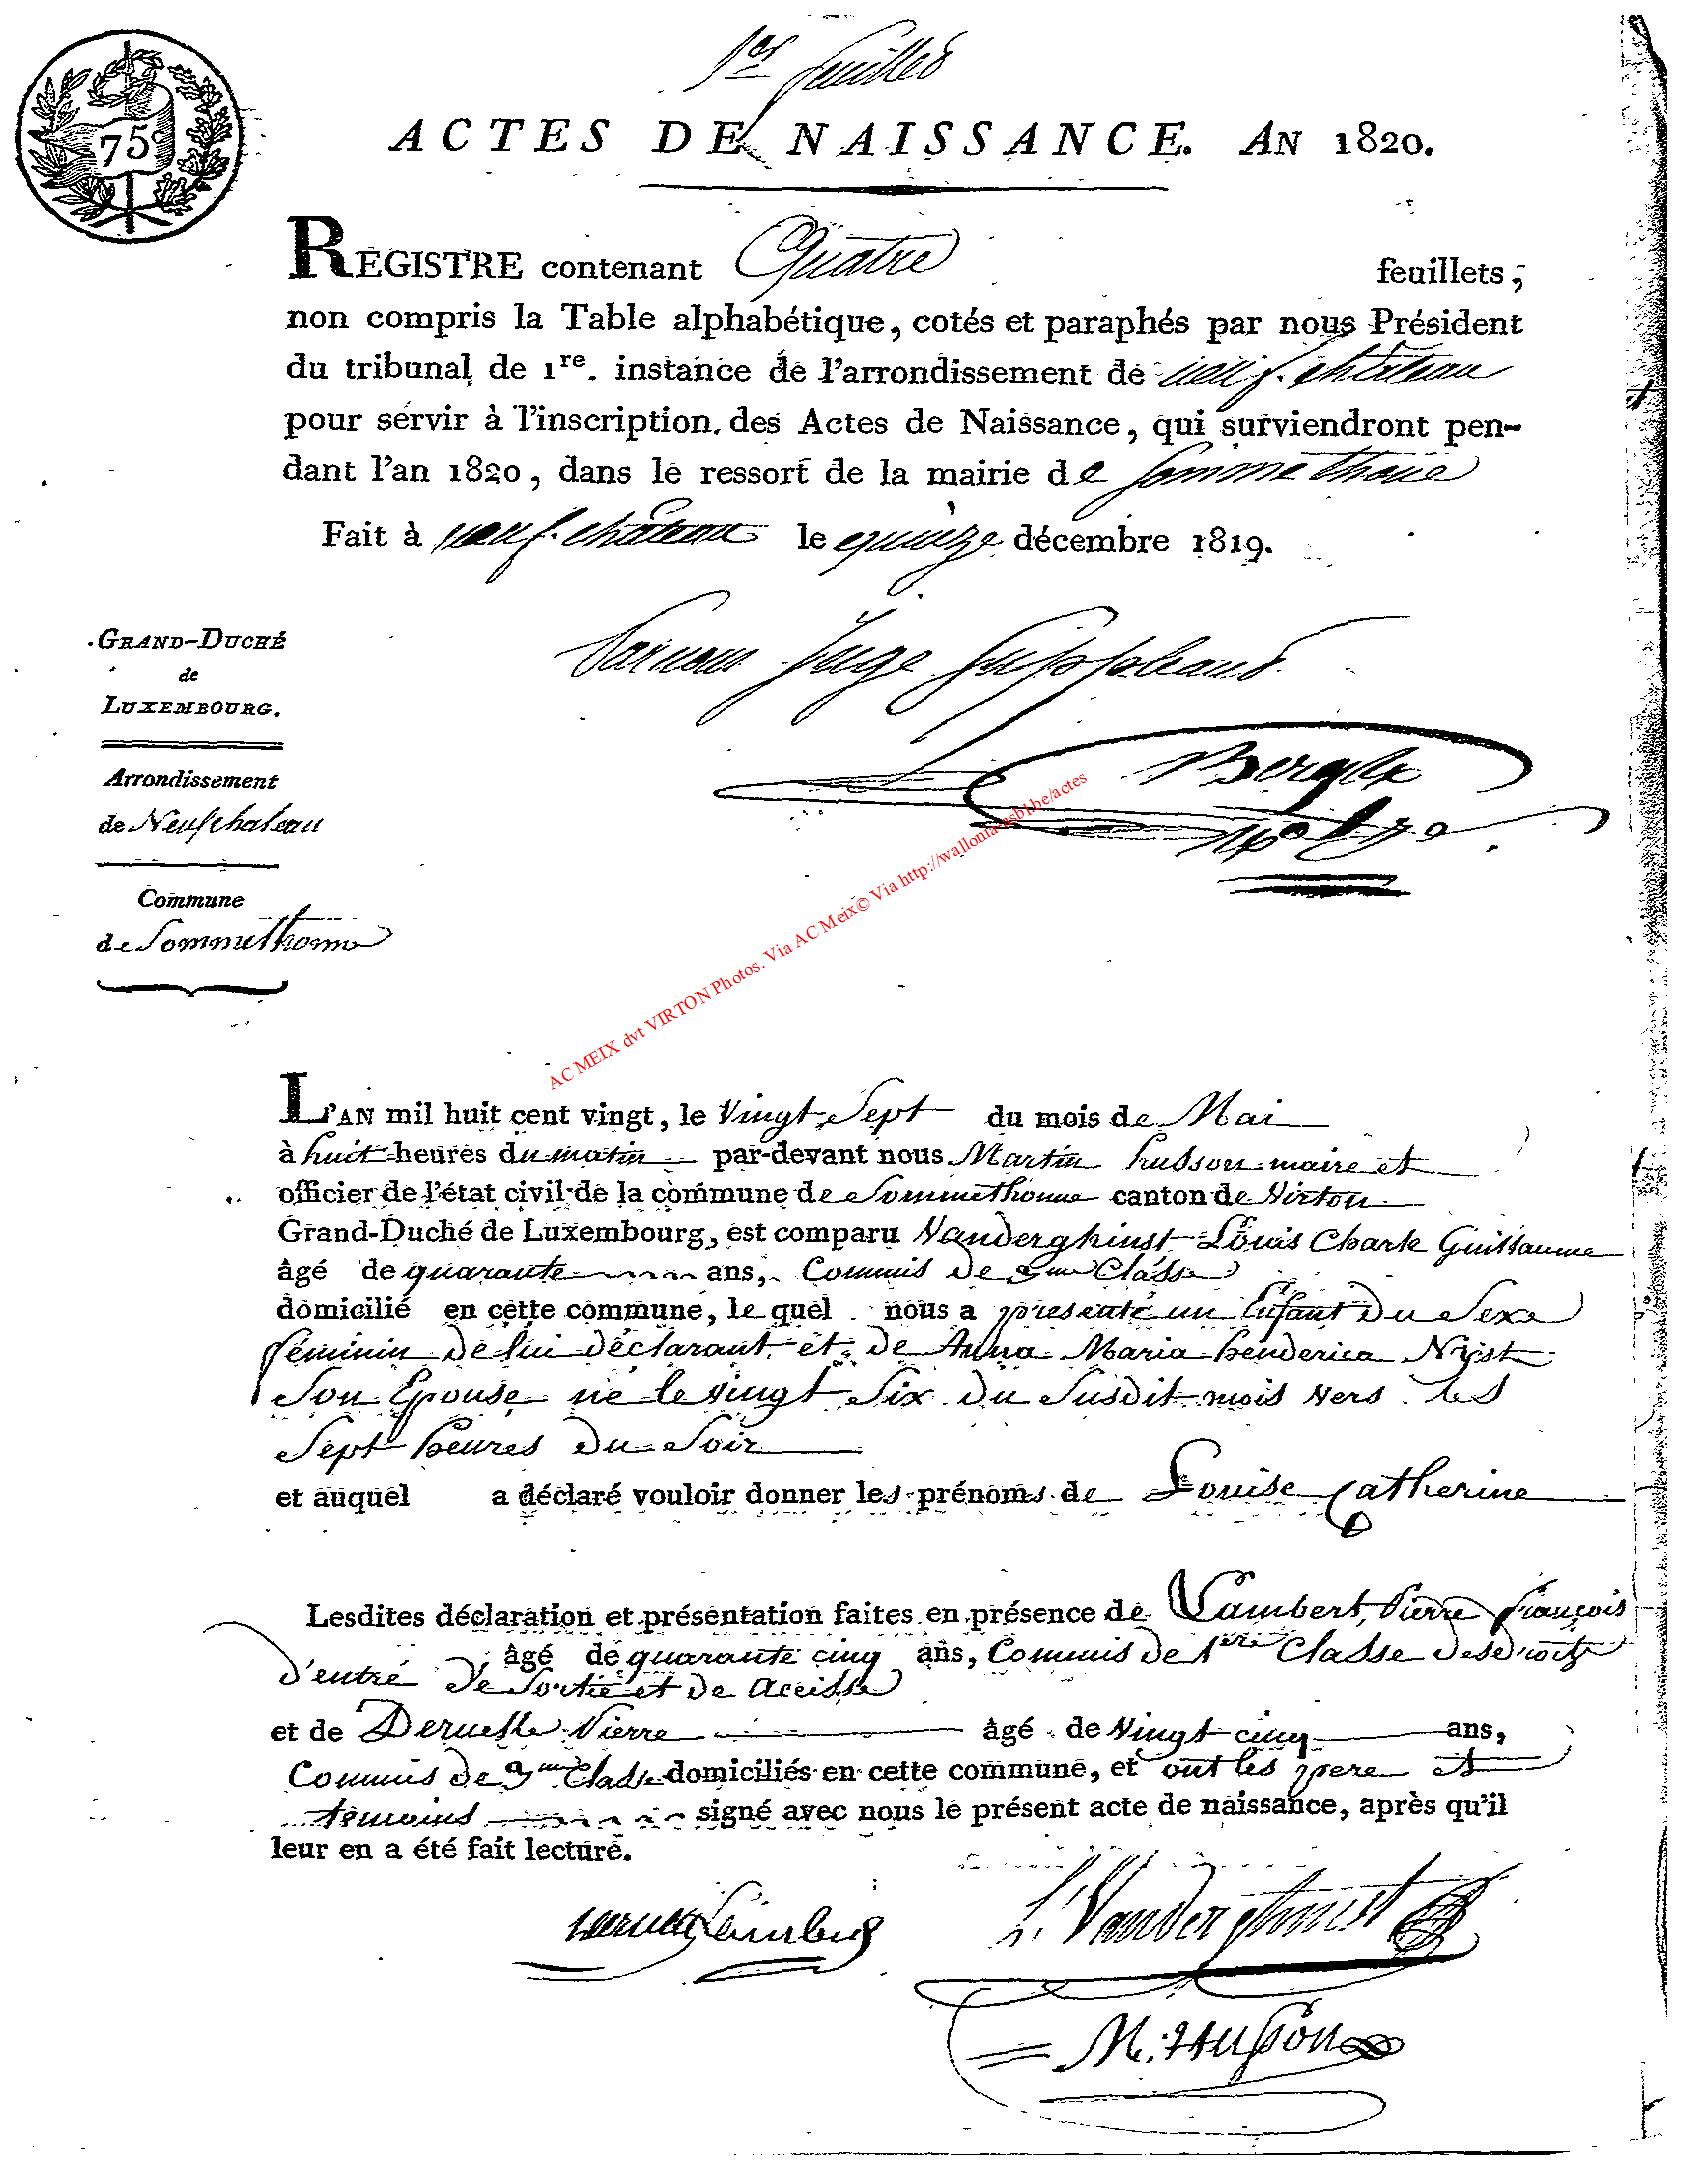 1er feuillet
75c
ACTES DE NAISSANCE. AN 1820.
REGISTRE contenant Quatre feuillets,
non compris la Table alphabétique, cotés et paraphés par nous Président
du tribunal de 1re. instance de l'arrondissement de neuf-château
pour servir à l'inscription des Actes de Naissance, qui surviendront pen-
dant l'an 1820, dans le ressort de la mairie de
Fait à neuf-château le quinze décembre 1819.
juge
GRAND-DUCHÉ
de
LUXEMBOURG.
Arrondissement
de Neufchateau
Commune
de Sommethonne
AC MEIX dvt VIRTON Photos. Via AC Meix© Via http://wallonia-asbl.be/actes
L'AN mil huit cent vingt, le vingt Sept du mois de Mai
à huit heures du matin par-devant nous Martin husson maire et
officier de l'état civil de la commune de Sommethonne canton de Virton
Grand-Duché de Luxembourg, est comparu Vanderghinst Louis Charle Guillaume
âgé de quarante ans, Commis de 2me Classe
domicilié en cette commune, le quel nous a presenté un Enfant du Sexe
féminin de lui déclarant et de Anna Maria henderica Nyst
Son Epouse né le vingt Six du Susdit mois vers les
Sept heures du Soir
et auquel a déclaré vouloir donner les prénoms de Louise Catherine
Lesdites déclaration et présentation faites en présence de Lambert, Pierre françois
âgé de quarante cinq ans, Commis de 1ere Classe des droits
d'entré de Sortie et de accisse
et de Deruelle Pierre âgé de vingt cinq ans,
Commis de 2me Classe domiciliés en cette commune, et ont les pere et
temoins signé avec nous le présent acte de naissance, après qu'il
leur en a été fait lecture.
L. Vanderghinst
M. Husson